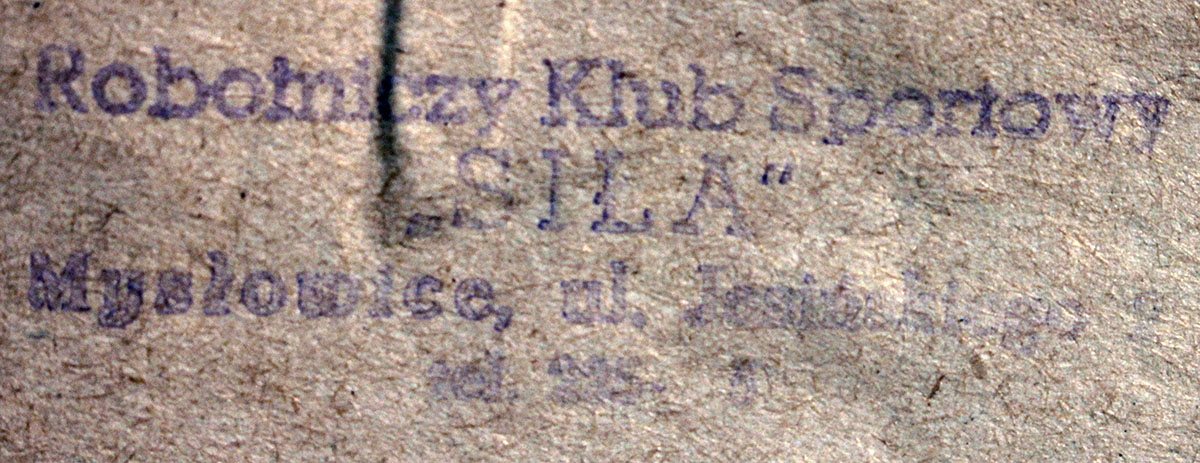 Robotniczy Klub Sportowy
„SIŁA"
Mysłowice, ul.
tel.